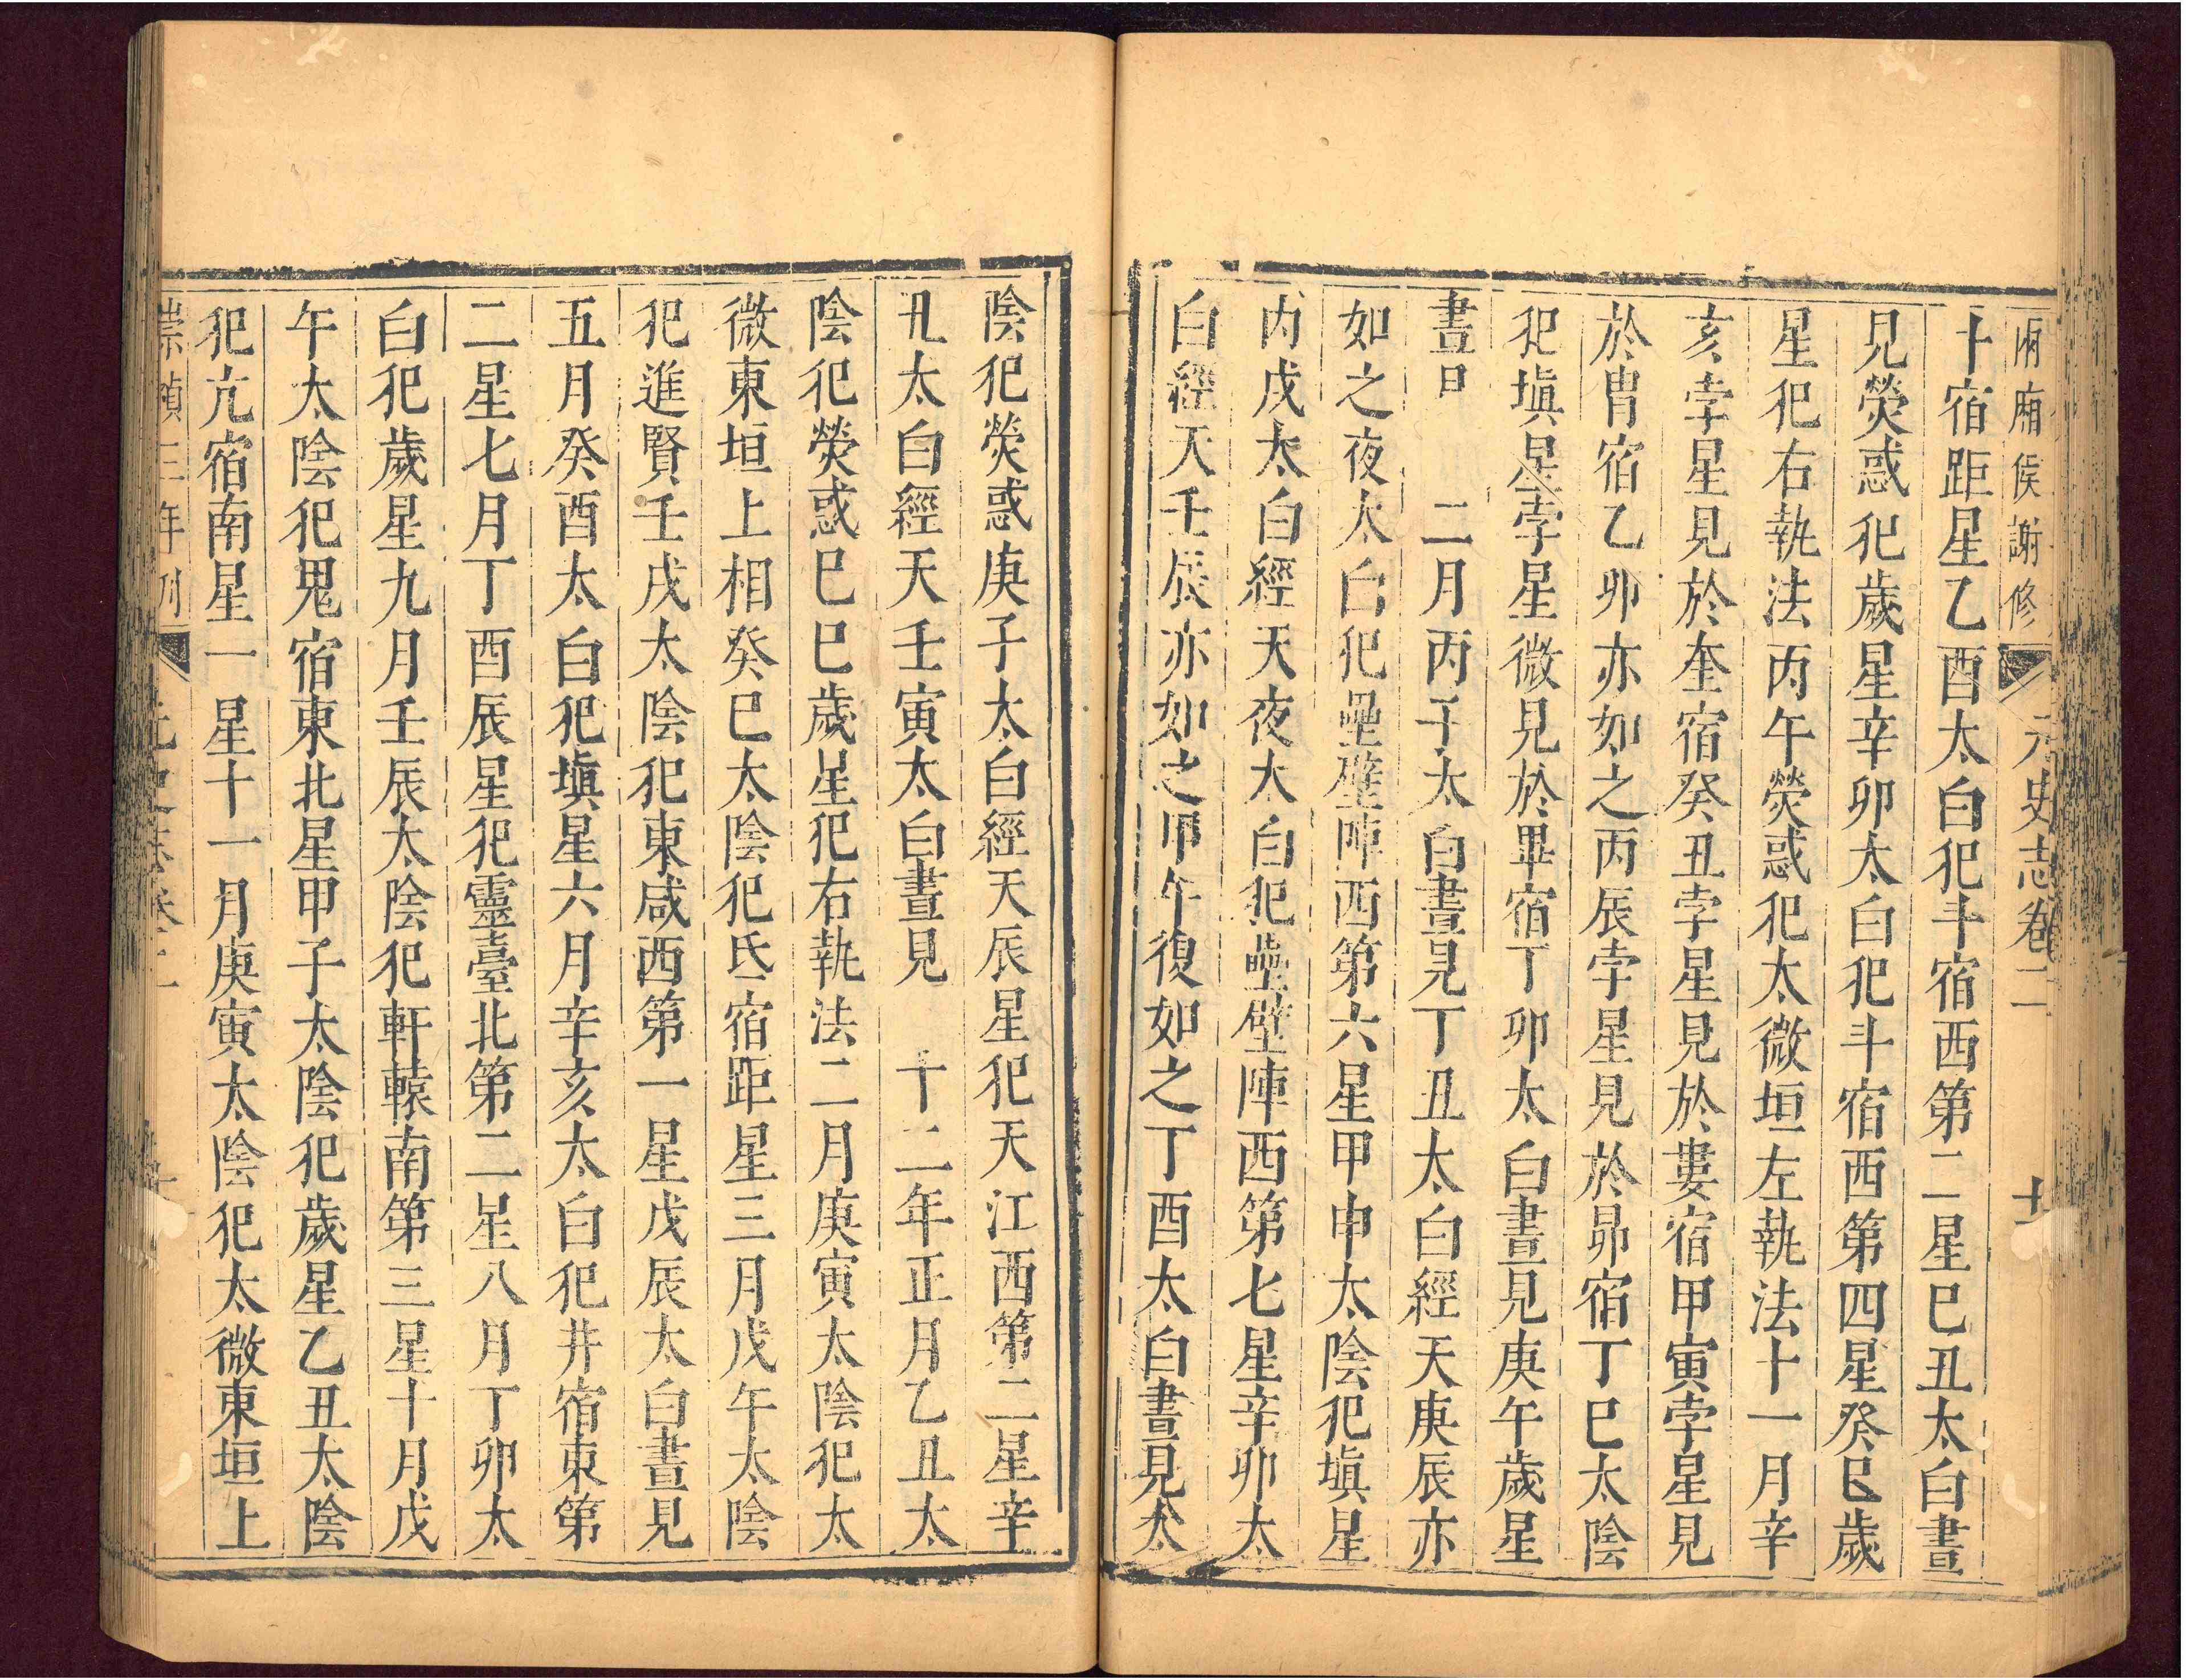 兩廂侯謝修 元史志卷二 十
十宿距星乙酉太白犯斗宿西第二星巳丑太白晝
見熒惑犯歲星辛卯太白犯斗宿西第四星癸巳歲
星犯右執法丙午熒惑犯太微垣左執法十一月辛
亥孛星見於奎宿癸丑孛星見於婁宿甲寅孛星見
於胃宿乙卯亦如之丙辰孛星見於昴宿丁巳太陰
犯塡星孛星微見於畢宿丁卯太白晝見庚午歲星
晝日 二月丙子太白晝見丁丑太白經天庚辰亦
如之夜太白犯壘壁陣西第六星甲申太陰犯塡星
丙戌太白經天夜太白犯壘壁陣西第七星辛卯太
白經天壬辰亦如之甲午復如之丁酉太白晝見太
陰犯熒惑庚子太白經天辰星犯天江西第二星辛
丑太白經天壬寅太白晝見 十二年正月乙丑太
陰犯熒惑巳巳歲星犯右執法二月庚寅太陰犯太
微東垣上相癸巳太陰犯氐宿距星三月戊午太陰
犯進賢壬戌太陰犯東咸西第一星戊辰太白晝見
五月癸酉太白犯塡星六月辛亥太白犯井宿東第
二星七月丁酉辰星犯靈臺北第二星八月丁卯太
白犯歲星九月壬辰太陰犯軒轅南第三星十月戊
午太陰犯鬼宿東北星甲子太陰犯歲星乙丑太陰
犯亢宿南星一 星十一月庚寅太陰犯太微東垣上
崇禎三年刊 元史志卷二